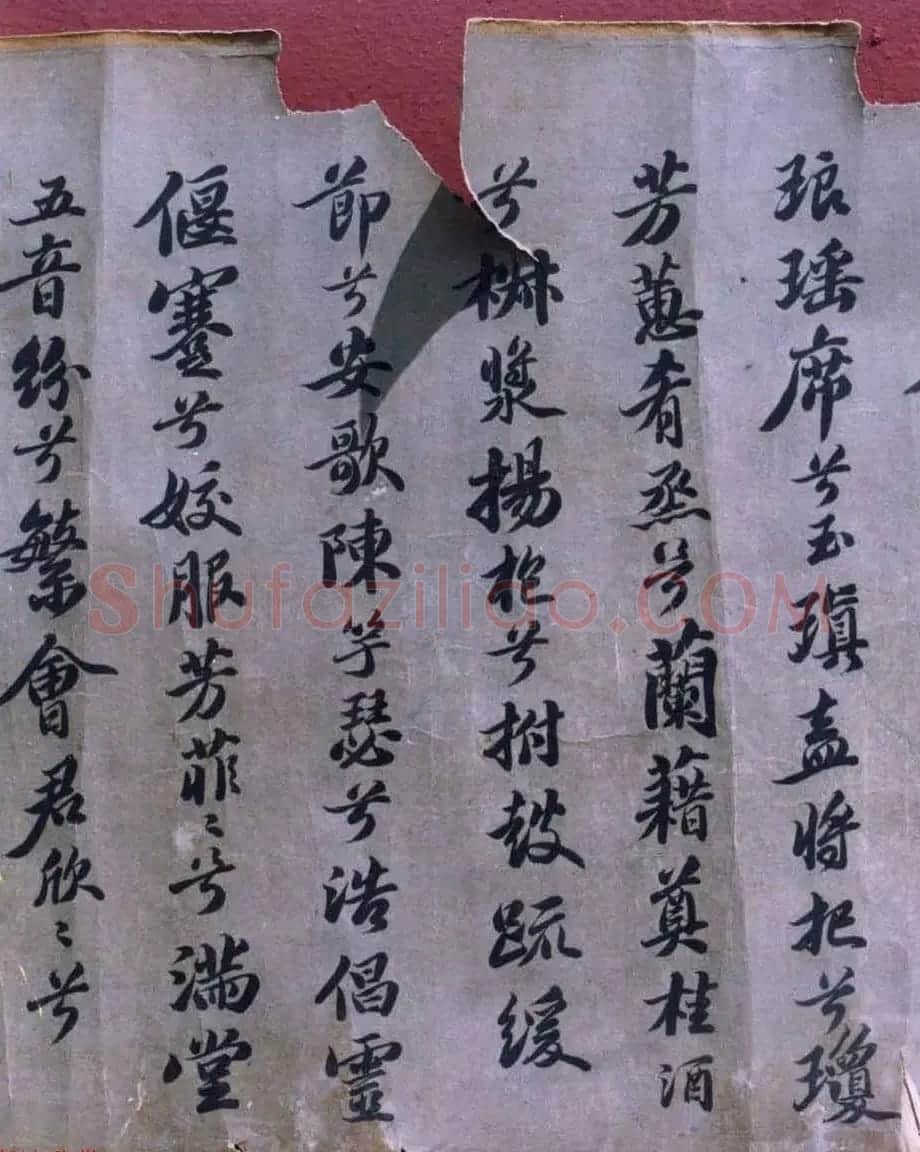 琅瑶席兮玉瑱盍将把兮瓊
芳蕙肴烝兮蘭藉奠桂酒
兮椒漿揚枹兮拊鼓疏緩
節兮安歌陳竽瑟兮浩倡靈
偃蹇兮姣服芳菲〻兮滿堂
五音紛兮繁會君欣〻兮
Shufaziliao.COM